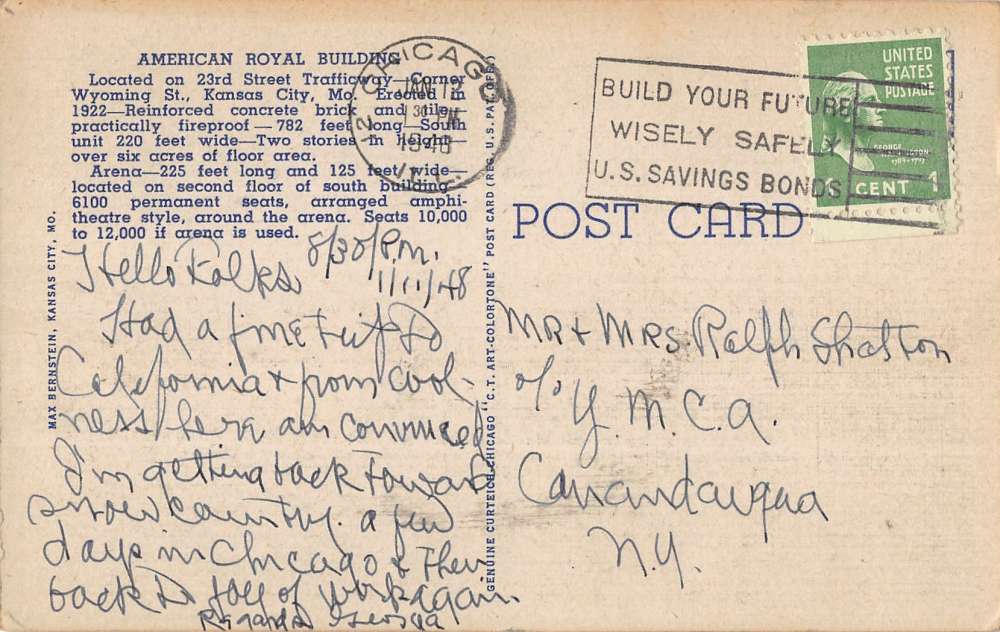 AMERICAN ROYAL BUILDING
Located on 23rd Street Trafficway—Corner
Wyoming St., Kansas City, Mo. Erected in
1922—Reinforced concrete brick and tile—
practically fireproof—782 feet long—South
unit 220 feet wide—Two stories in height—
over six acres of floor area.
Arena—225 feet long and 125 feet wide—
located on second floor of south building—
6100 permanent seats, arranged amphi-
theatre style, around the arena. Seats 10,000
to 12,000 if arena is used.
MAX BERNSTEIN, KANSAS CITY, MO.
Hello Folks 8/30/P.m.
1/11/48
Had a fine trip to
California & from cool-
ness here am convinced
I'm getting back toward
snow country. a few
days in Chicago & then
back to joy of work again.
Regards Georgia
GENUINE CURTEICH-CHICAGO "C.T. ART-COLORTONE" POST CARD (REG. U.S. PAT. OFF.)
CHICAGO
JAN 12
30 PM
1948
ILL.
BUILD YOUR FUTURE
WISELY SAFELY
U.S. SAVINGS BONDS
UNITED
STATES
POSTAGE
GEORGE
WASHINGTON
1789-1797
1 CENT 1
POST CARD
MR + MRS. Ralph Stratton
c/o Y.M.C.A.
Canandaigua
N.Y.